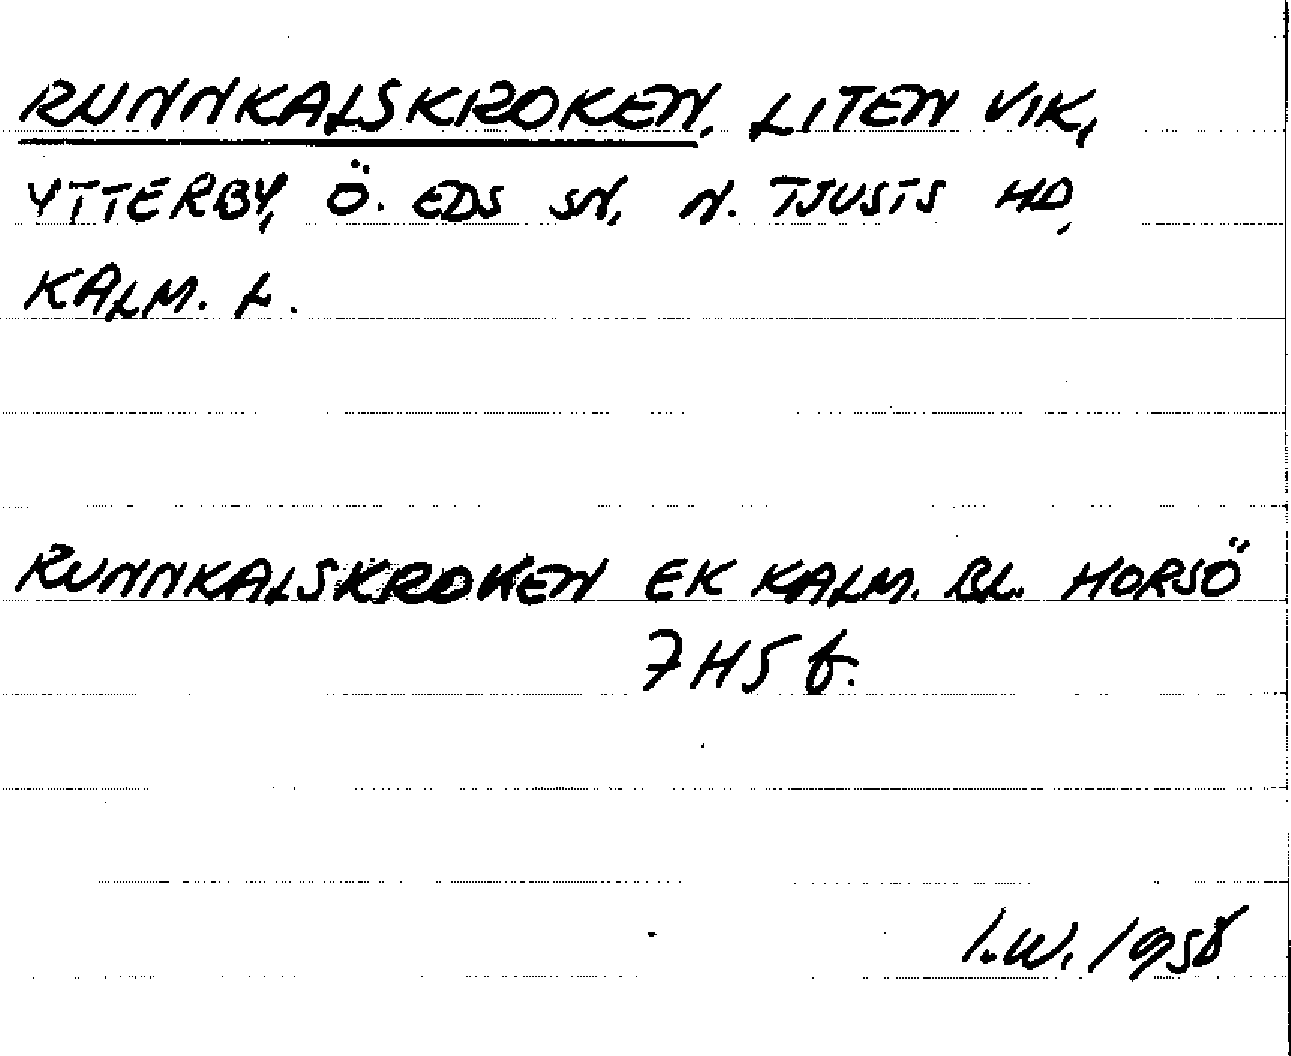 RUNNKALSKROKEN, LITEN VIK,
YTTERBY, Ö. EDS SN, N. TJUSTS HD,
KALM. L.
RUNNKALSKROKEN EK KALM. BL. HORSÖ
7H5f.
I.W. 1958